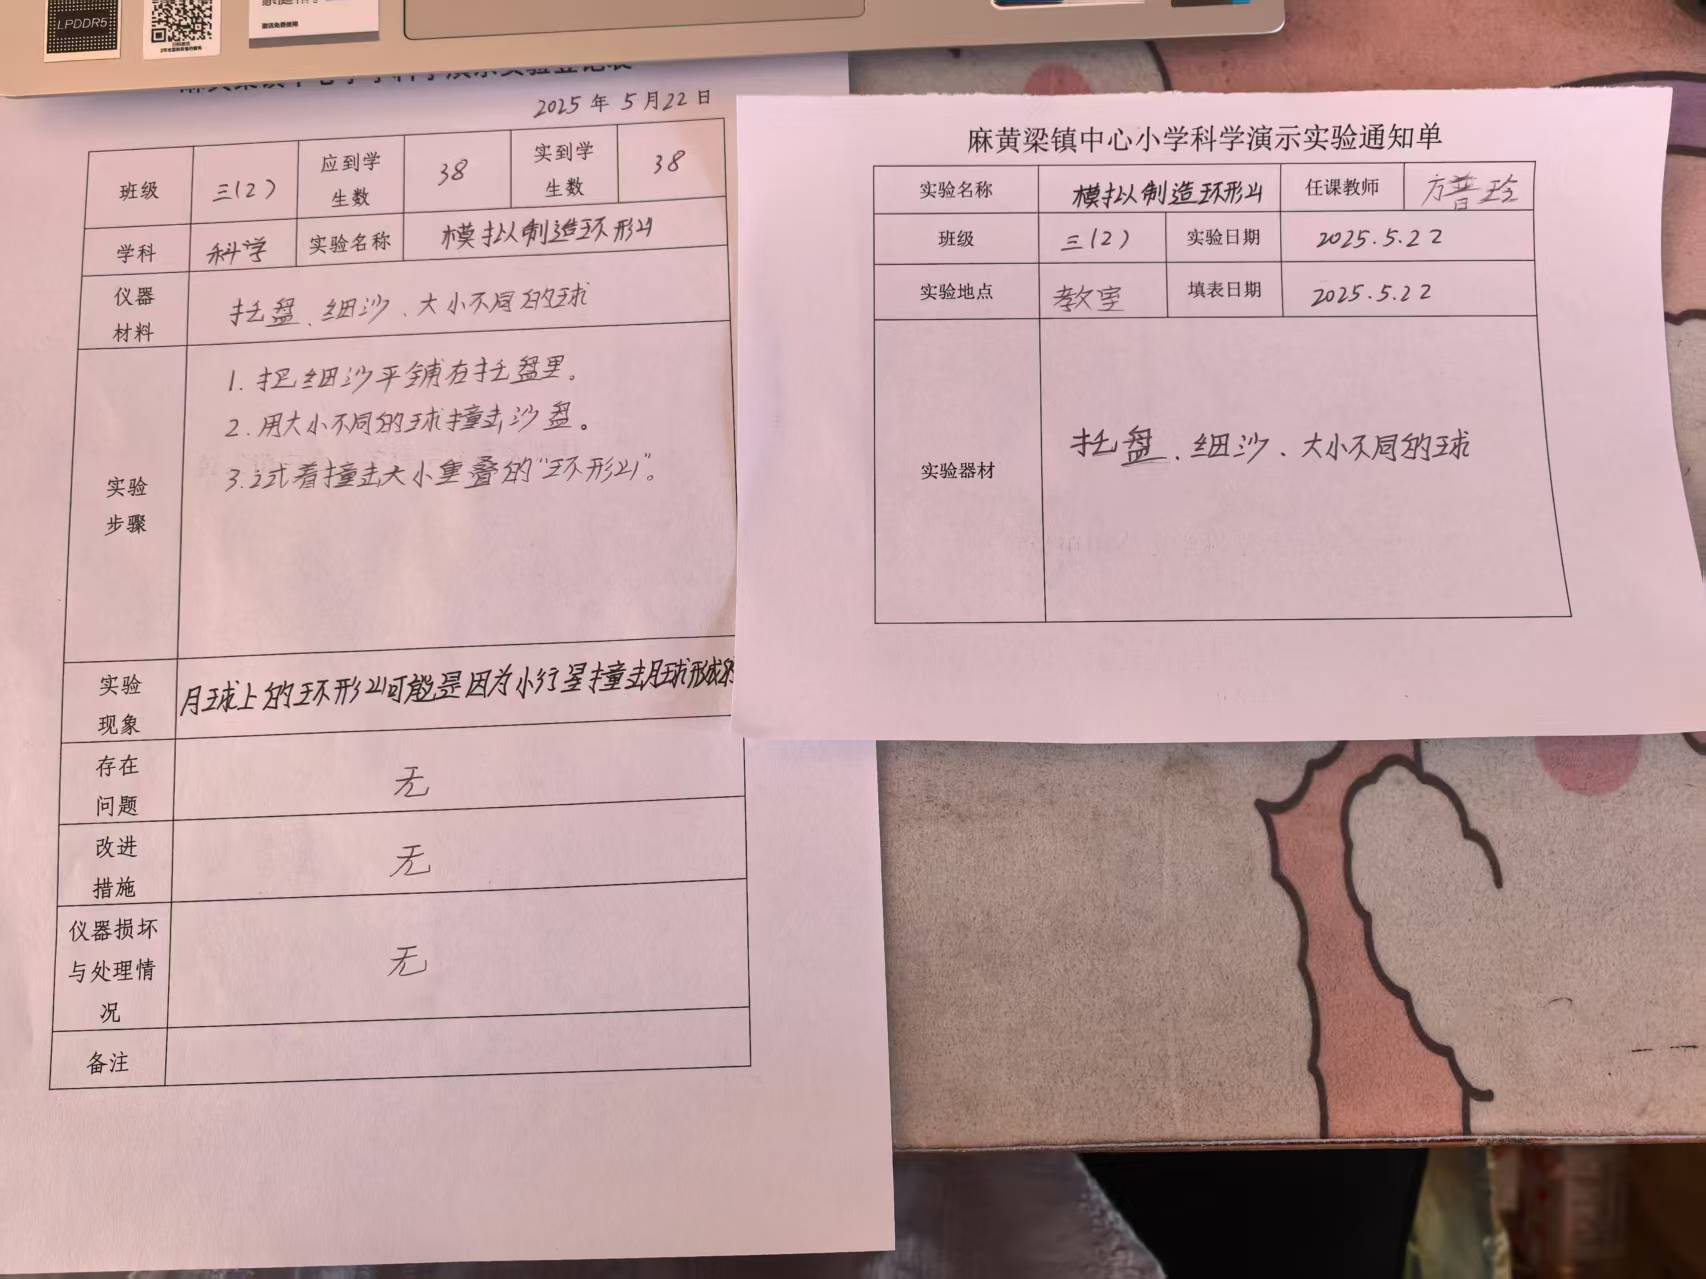 LPDDR5
2025年5月22日
班级 三(2) 应到学生数 38 实到学生数 38
学科 科学 实验名称 模拟制造环形山
仪器材料 托盘、细沙、大小不同的球
实验步骤
1. 把细沙平铺在托盘里。
2. 用大小不同的球撞击沙盘。
3. 试着撞击大小重叠的“环形山”。
实验现象 月球上的环形山可能是因为小行星撞击月球形成的
存在问题 无
改进措施 无
仪器损坏与处理情况 无
备注
麻黄梁镇中心小学科学演示实验通知单
实验名称 模拟制造环形山 任课教师
班级 三(2) 实验日期 2025.5.22
实验地点 教室 填表日期 2025.5.22
实验器材 托盘、细沙、大小不同的球